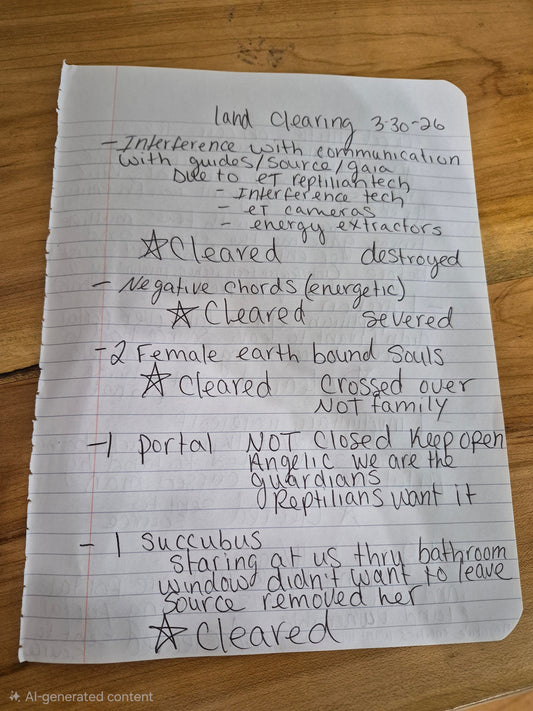 land clearing 3-30-26
- Interference with communication
with guides/source/gaia
Due to eT reptilian tech
- Interference tech
- eT cameras
- energy extractors
☆ Cleared destroyed
- Negative chords (energetic)
☆ Cleared severed
- 2 Female earth bound souls
☆ Cleared Crossed over
NOT family
- 1 portal NOT Closed Keep open
Angelic we are the
guardians
Reptilians want it
- 1 Succubus
staring at us thru bathroom
window didn't want to leave
source removed her
☆ Cleared
AI-generated content